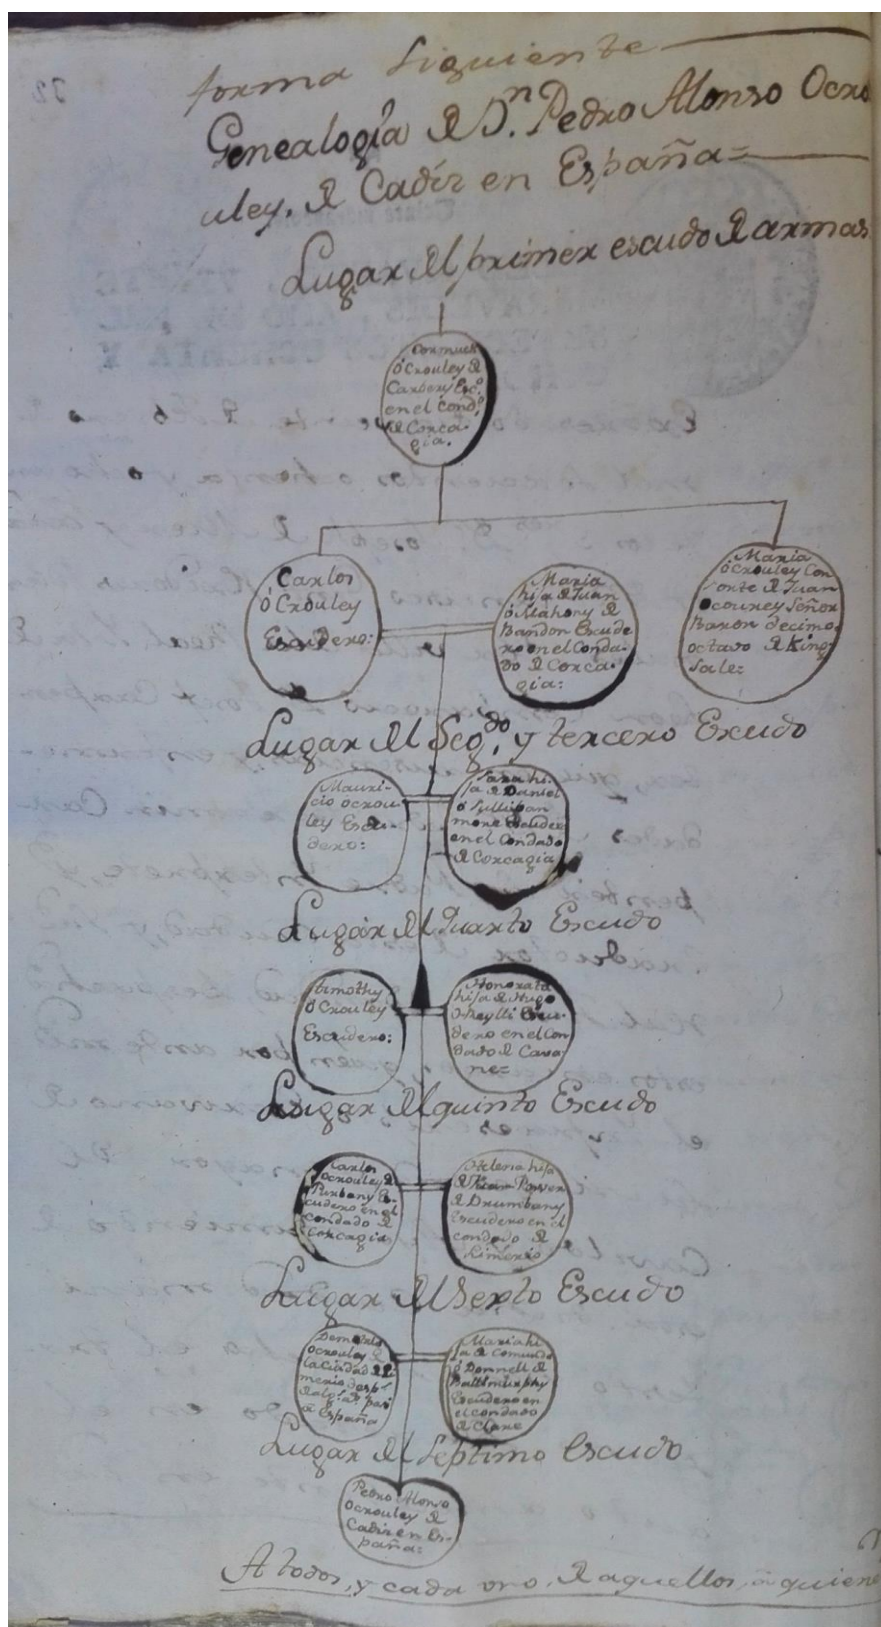 forma siguiente
Genealogía de Dn. Pedro Alonso Ocro
uley, de Cadiz en España=
Lugar del primer escudo de armas
Cormuck
óCrouley de
Carbery Esco.
en el Condo.
de Corca-
gia.
Carlos
ó Crouley
Escudero:
Maria
hija de Juan
ó Mahony de
Bandon Escude
ro en el Conda-
do de Corca-
gia:
Maria
óCrouley Con
sorte de Juan
Ocourcy Señor
Baron decimo
octavo de King-
sale:
Lugar del Segdo. y tercero Escudo
Mauri-
cio ocrou-
ley Escu-
dero:
Sara hi-
ja de Daniel
ó Sullivan
more Escudero
en el Condado
de Corcagia
Lugar del Quarto Escudo
timothy
ó Crouley
Escudero:
Honorata
hija de Hugo
Oreylli Escu-
dero en el Con
dado de Cava-
ne=
Lugar del quinto Escudo
Carlos
ocrouley de
Purbany Es-
cudero en el
condado de
Corcagia
Helena hija
de Power
de Drumbany
Escudero en el
condado de
Limerio
Lugar del Sexto Escudo
Demetrio
ocrouley de
la ciudad de Li
merio desps.
pasó
á España
Maria hi
ja de Edmundo
ó Donnell de
Escudero en
el condado
de Clare
Lugar del Septimo Escudo
Pedro Alonso
Ocrouley de
Cadiz en Es-
paña:
A todos, y cada uno, de aquellos, á quiene